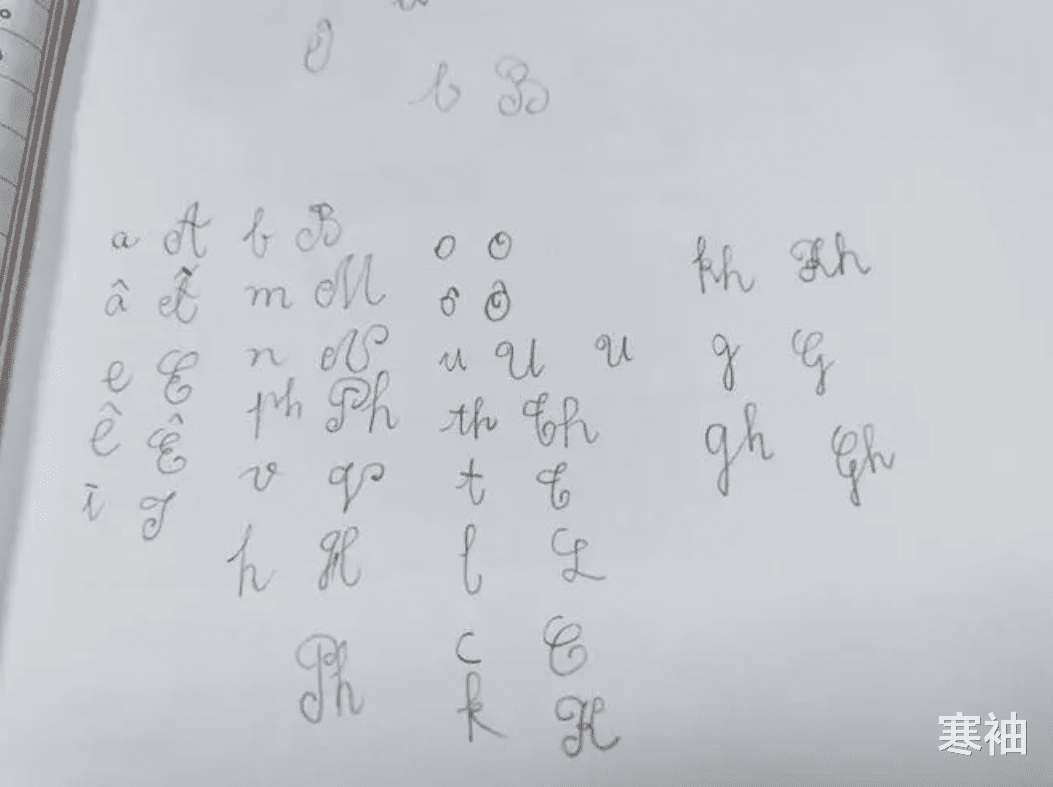 Ô
b B
a A b B o O kh Kh
â Â m M ô Ô
e E n N u U u g G
ê Ê ph Ph th Th gh Gh
i I v V t T
h H l L
Ph c C
k K
寒袖